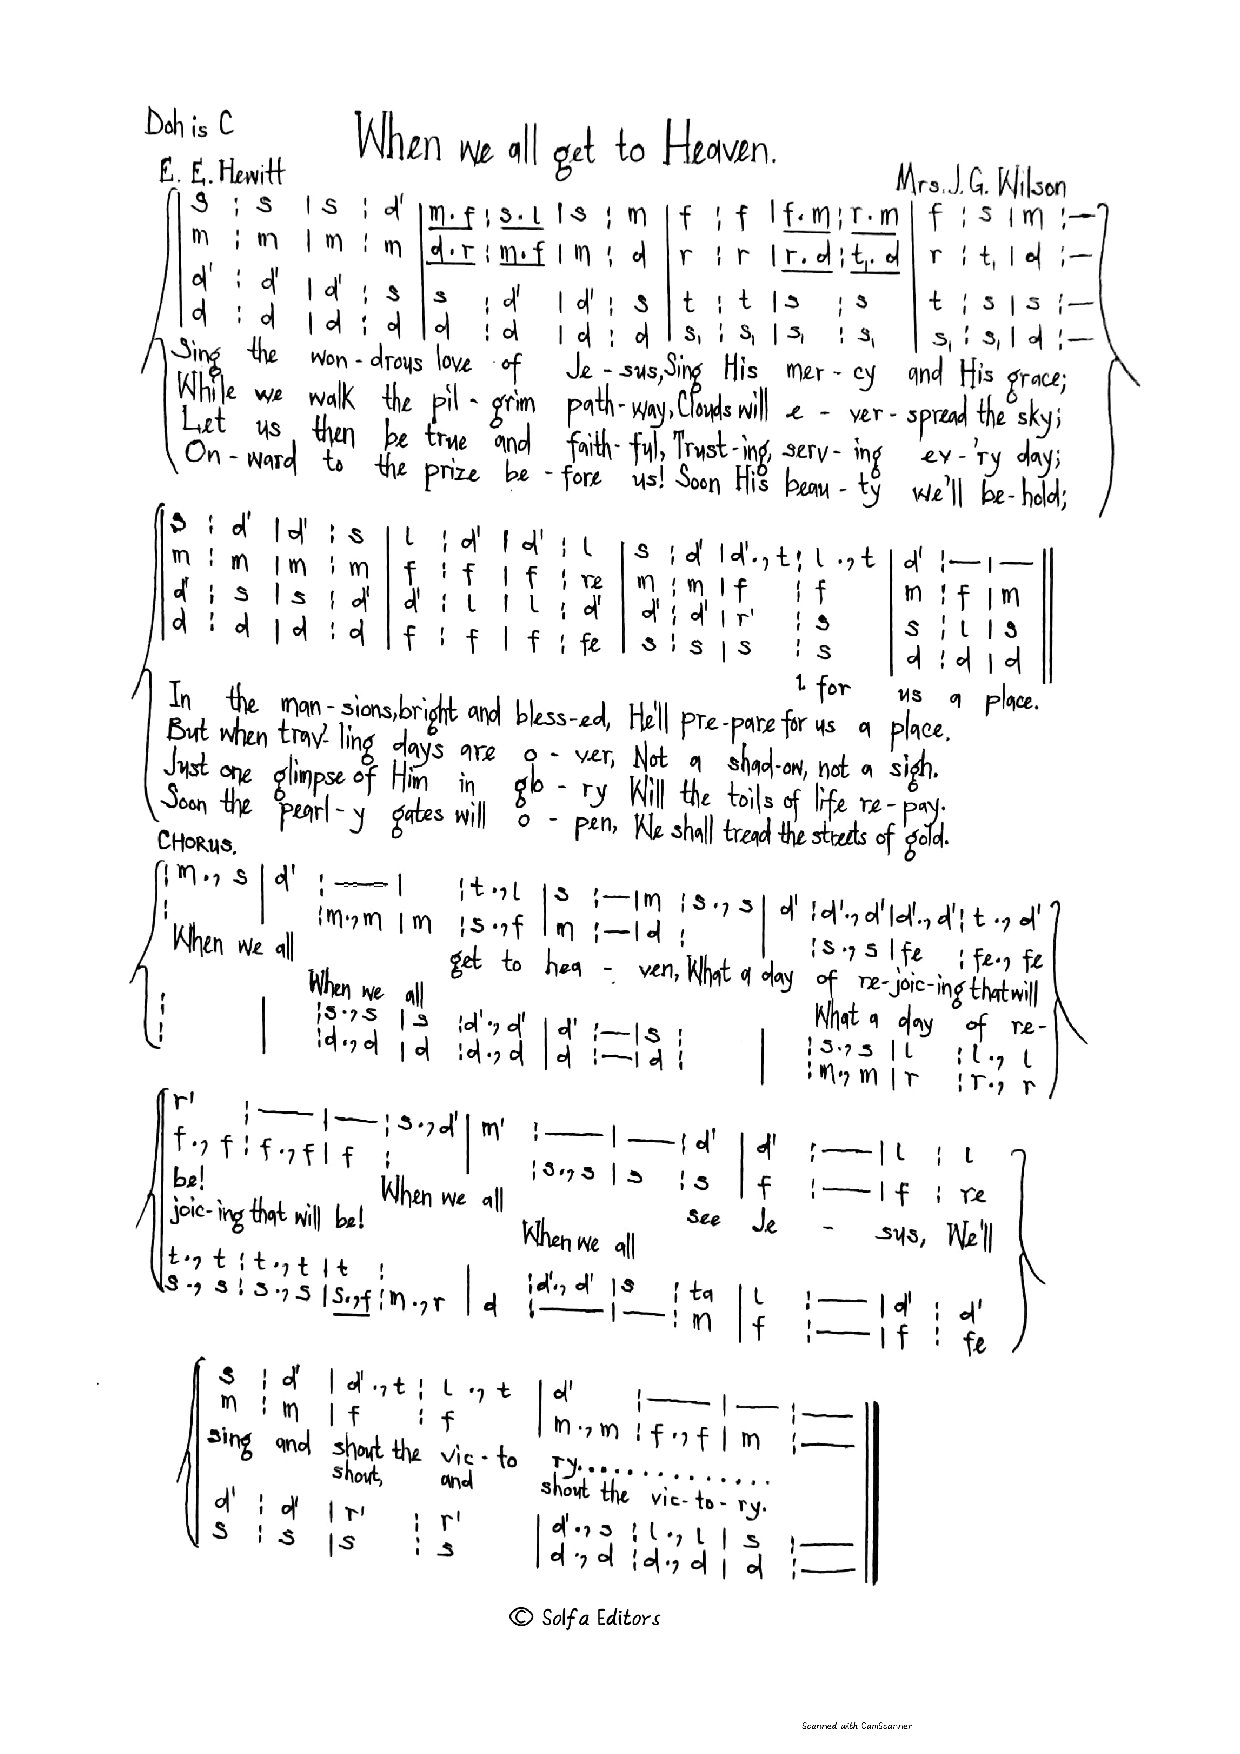 Doh is C
When we all get to Heaven.
E. E. Hewitt
Mrs. J. G. Wilson
s : s | s : d' | m.f : s.l | s : m | f : f | f.m : r.m | f : s | m : —
m : m | m : m | d.r : m.f | m : d | r : r | r.d : t,.d | r : t, | d : —
d' : d' | d' : s | s : d' | d' : s | t : t | s : s | t : s | s : —
d : d | d : d | d : d | d : d | s, : s, | s, : s, | s, : s, | d : —
Sing the won-drous love of Je-sus, Sing His mer-cy and His grace;
While we walk the pil-grim path-way, Clouds will e-ver-spread the sky;
Let us then be true and faith-ful, Trust-ing, serv-ing ev-'ry day;
On-ward to the prize be-fore us! Soon His beau-ty we'll be-hold;
s : d' | d' : s | l : d' | d' : l | s : d' | d'., t : l ., t | d' : — | —
m : m | m : m | f : f | f : re | m : m | f : f | m : f | m
d' : s | s : d' | d' : l | l : d' | d' : d' | r' : s | s : l | s
d : d | d : d | f : f | f : fe | s : s | s : s | d : d | d
1. for us a place.
In the man-sions, bright and bless-ed, He'll pre-pare for us a place.
But when trav'-ling days are o-ver, Not a shad-ow, not a sigh.
Just one glimpse of Him in glo-ry Will the toils of life re-pay.
Soon the pearl-y gates will o-pen, We shall tread the streets of gold.
CHORUS.
: m ., s | d' : — | : t ., l | s : — | m : s ., s | d' : d'., d' | d'., d' : t ., d'
: : m ., m | m : s ., f | m : — | d : : s ., s | fe : fe ., fe
When we all get to hea-ven, What a day of re-joic-ing that will
When we all What a day of re-
: : s ., s | s : d'., d' | d' : — | s : : s ., s | l : l ., l
: : d ., d | d : d ., d | d : — | d : : m ., m | r : r ., r
r' : — | — : s ., d' | m' : — | — : d' | d' : — | l : l
f ., f : f ., f | f : : s ., s | s : s | f : — | f : re
be! When we all see Je-sus, We'll
joic-ing that will be! When we all
t ., t : t ., t | t : : d'., d' | s : ta | l : — | d' : d'
s ., s : s ., s | s ., f : m ., r | d : — | — : m | f : — | f : fe
s : d' | d' ., t : l ., t | d' : — | — : —
m : m | f : f | m ., m : f ., f | m : —
sing and shout the vic-to ry..............
shout, and shout the vic-to-ry.
d' : d' | r' : r' | d'., s : l ., l | s : —
s : s | s : s | d ., d : d ., d | d : —
© Solfa Editors
Scanned with CamScanner